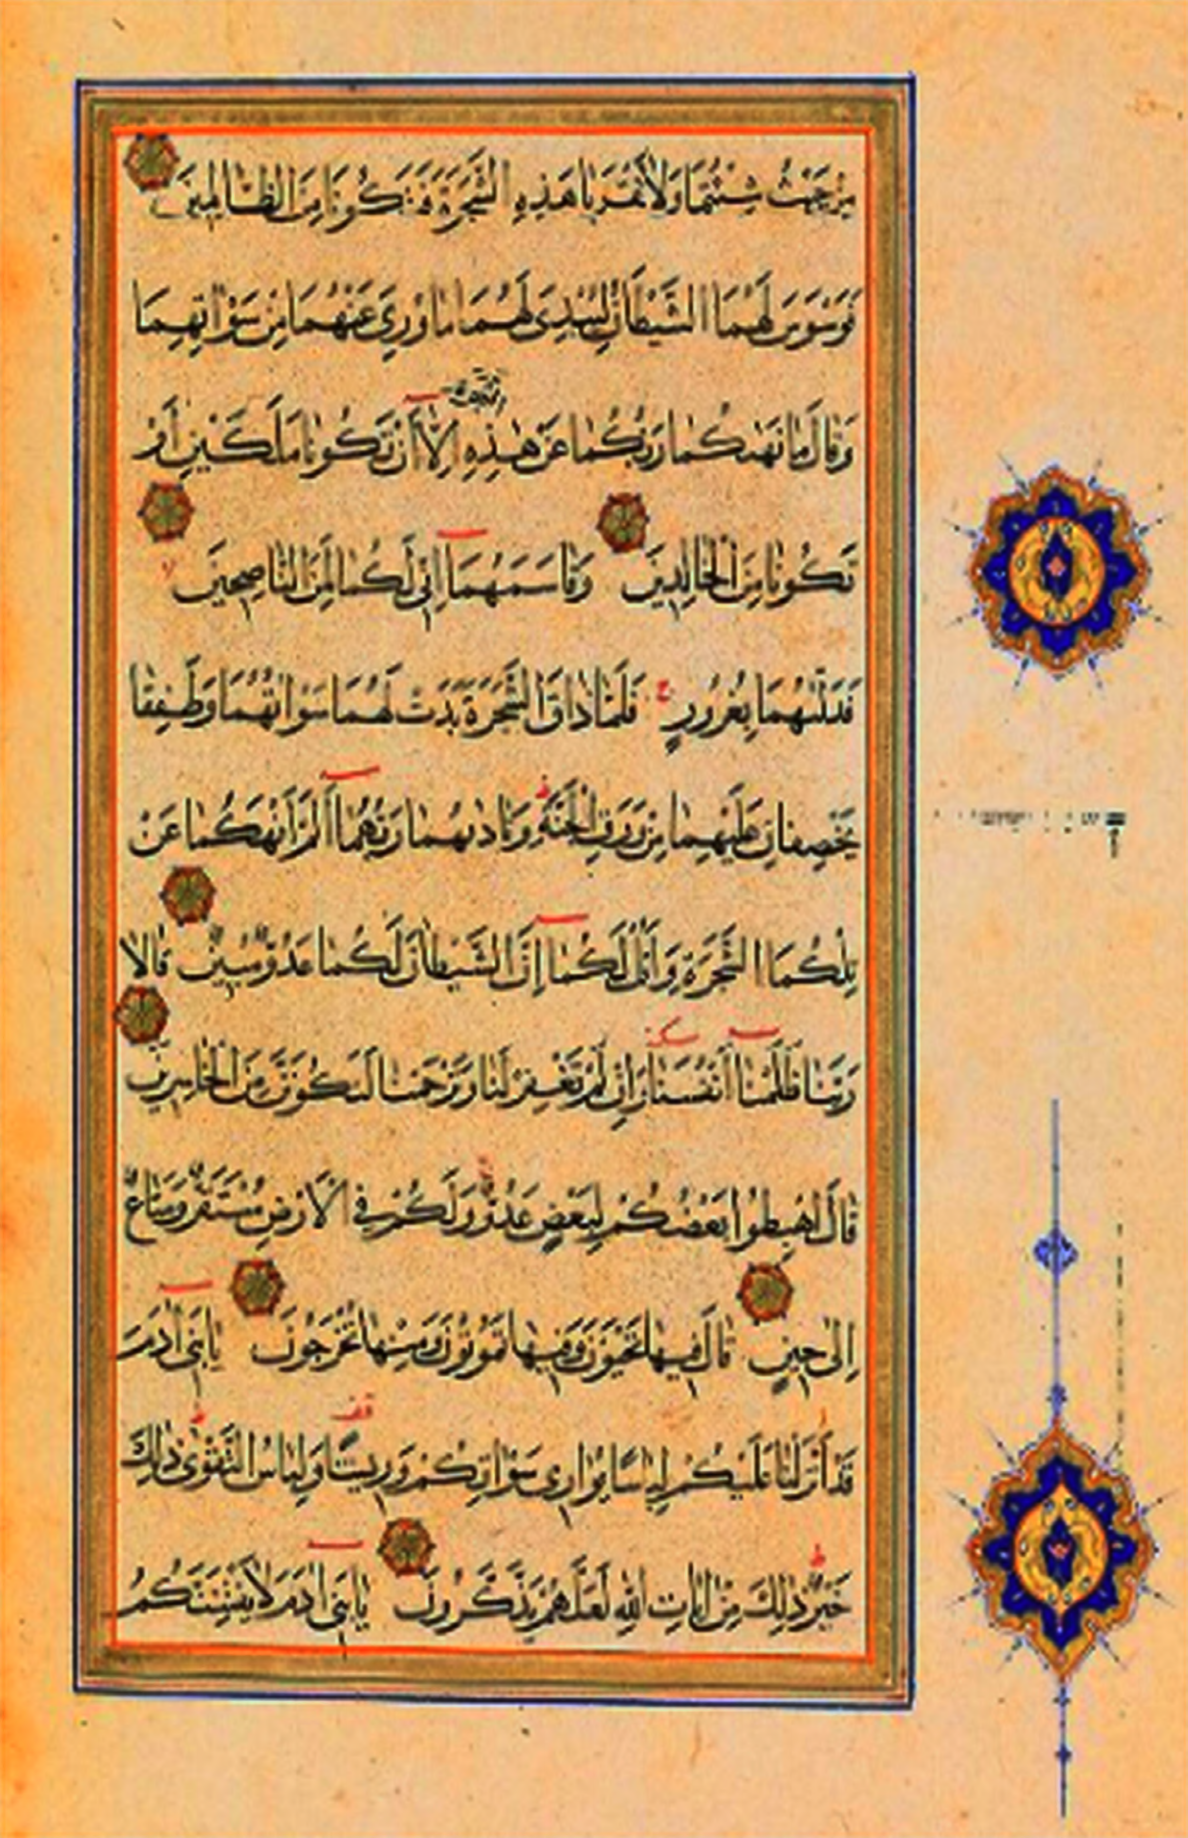 مِنْ حَيْثُ شِئْتُمَا وَلَا تَقْرَبَا هَذِهِ الشَّجَرَةَ فَتَكُونَا مِنَ الظَّالِمِينَ
فَوَسْوَسَ لَهُمَا الشَّيْطَانُ لِيُبْدِىَ لَهُمَا مَا وُرِيَ عَنْهُمَا مِنْ سَوْاٰتِهِمَا
وَقَالَ مَا نَهٰىكُمَا رَبُّكُمَا عَنْ هٰذِهِ الشجرة اِلَّا اَنْ تَكُونَا مَلَكَيْنِ اَوْ
تَكُونَا مِنَ الْخَالِدِينَ وَقَاسَمَهُمَا اِنّى لَكُمَا لَمِنَ النَّاصِحِينَ
فَدَلّٰىهُمَا بِغُرُورٍ فَلَمَّا ذَاقَا الشَّجَرَةَ بَدَتْ لَهُمَا سَوْاٰتُهُمَا وَطَفِقَا
يَخْصِفَانِ عَلَيْهِمَا مِنْ وَرَقِ الْجَنَّةِ وَنَادٰىهُمَا رَبُّهُمَا اَلَمْ اَنْهَكُمَا عَنْ
تِلْكُمَا الشَّجَرَةِ وَاَقُلْ لَكُمَا اِنَّ الشَّيْطَانَ لَكُمَا عَدُوٌّ مُبِينٌ قَالَا
رَبَّنَا ظَلَمْنَا اَنْفُسَنَا وَاِنْ لَمْ تَغْفِرْ لَنَا وَتَرْحَمْنَا لَنَكُونَنَّ مِنَ الْخَاسِرِينَ
قَالَ اهْبِطُوا بَعْضُكُمْ لِبَعْضٍ عَدُوٌّ وَلَكُمْ فِى الْاَرْضِ مُسْتَقَرٌّ وَمَتَاعٌ
اِلٰى حِينٍ قَالَ فِيهَا تَحْيَوْنَ وَفِيهَا تَمُوتُونَ وَمِنْهَا تُخْرَجُونَ يَا بَنِى اٰدَمَ
قَدْ اَنْزَلْنَا عَلَيْكُمْ لِبَاسًا يُوَارِى سَوْاٰتِكُمْ وَرِيشًا وَلِبَاسُ التَّقْوٰى ذٰلِكَ
خَيْرٌ ذٰلِكَ مِنْ اٰيَاتِ اللّٰهِ لَعَلَّهُمْ يَذَّكَّرُونَ يَا بَنِى اٰدَمَ لَا يَفْتِنَنَّكُمُ